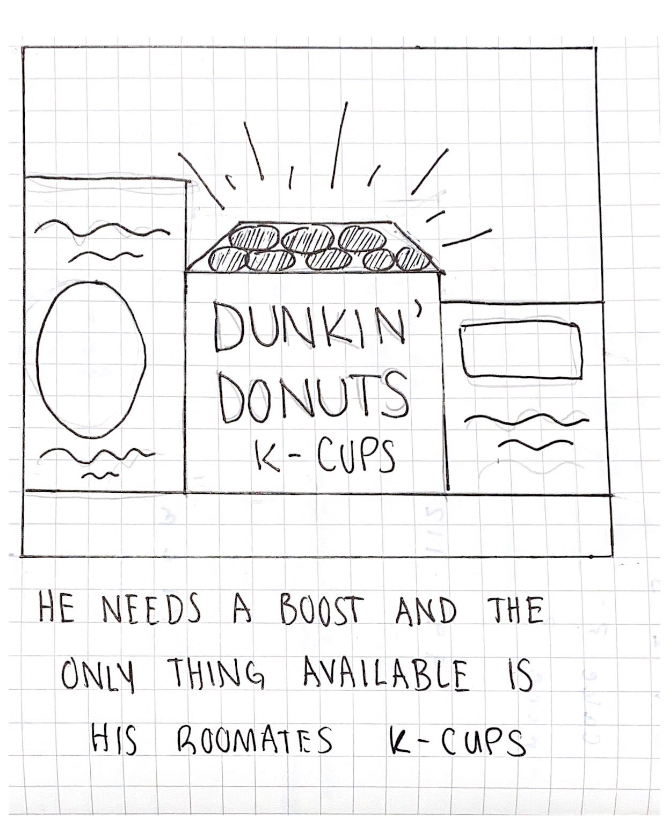 DUNKIN'
DONUTS
K-CUPS
HE NEEDS A BOOST AND THE
ONLY THING AVAILABLE IS
HIS ROOMATES K-CUPS